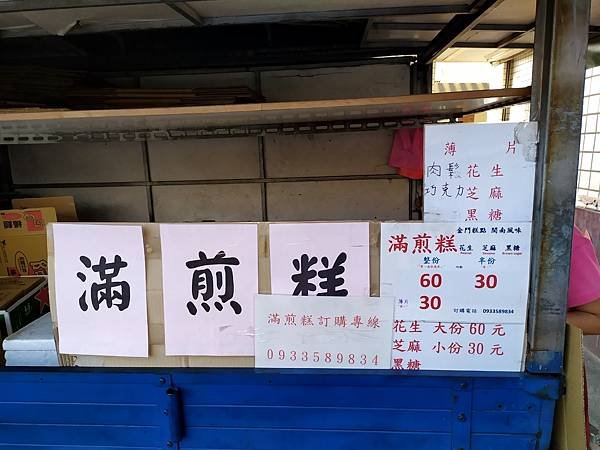 滿 煎 糕
滿煎糕訂購專線
0933589834
薄 片
肉鬆 花生
巧克力 芝麻
黑糖
金門糕點 閩南風味
滿煎糕 花生 芝麻 黑糖
整份 半份
60 30
薄片
30
訂購電話 0933589834
花生 大份60元
芝麻 小份30元
黑糖